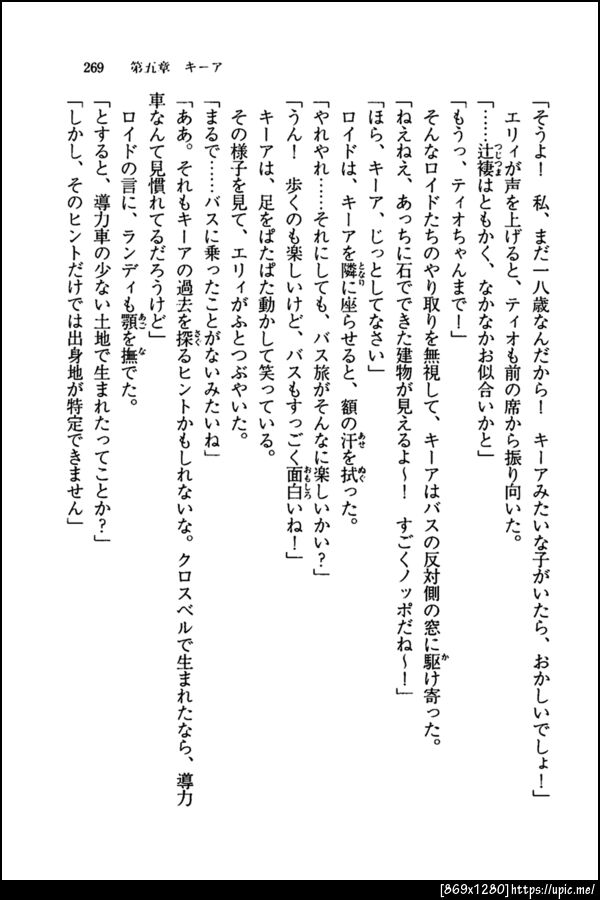 269 第五章 キーア
「そうよ！ 私、まだ一八歳なんだから！ キーアみたいな子がいたら、おかしいでしょ！」
エリィが声を上げると、ティオも前の席から振り向いた。
「……辻褄はともかく、なかなかお似合いかと」
「もうっ、ティオちゃんまで！」
そんなロイドたちのやり取りを無視して、キーアはバスの反対側の窓に駆け寄った。
「ねえねえ、あっちに石でできた建物が見えるよ〜！ すごくノッポだね〜！」
「ほら、キーア、じっとしてなさい」
ロイドは、キーアを隣に座らせると、額の汗を拭った。
「やれやれ……それにしても、バス旅がそんなに楽しいかい？」
「うん！ 歩くのも楽しいけど、バスもすっごく面白いね！」
キーアは、足をぱたぱた動かして笑っている。
その様子を見て、エリィがふとつぶやいた。
「まるで……バスに乗ったことがないみたいね」
「ああ。それもキーアの過去を探るヒントかもしれないな。クロスベルで生まれたなら、導力
車なんて見慣れてるだろうけど」
ロイドの言に、ランディも顎を撫でた。
「とすると、導力車の少ない土地で生まれたってことか？」
「しかし、そのヒントだけでは出身地が特定できません」
[869x1280]https://upic.me/